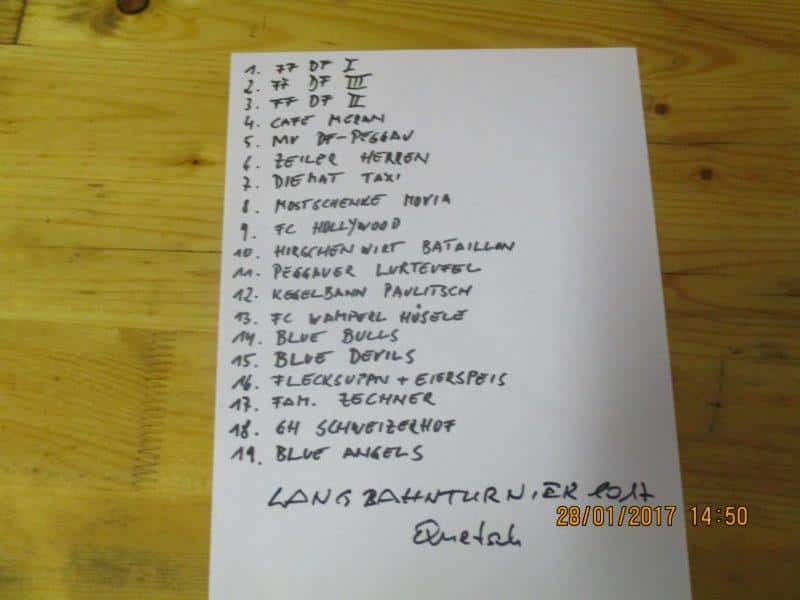 1. FF DF I
2. FF DF III
3. FF DF II
4. CAFE MERAN
5. MV DF-PEGGAU
6. ZEILER HERREN
7. DIEMAT TAXI
8. MOSTSCHENKE MOVIA
9. FC HOLLYWOOD
10. HIRSCHENWIRT BATAILLON
11. PEGGAUER LURTEUFEL
12. KEGELBAHN PAULITSCH
13. FC WAMPERL HÖSELE
14. BLUE BULLS
15. BLUE DEVILS
16. FLECKSUPAN + EIERSPEIS
17. FAM. ZECHNER
18. GH SCHWEIZERHOF
19. BLUE ANGELS
LANGBAHNTURNIER 2017
Quetsch
28/01/2017 14:50